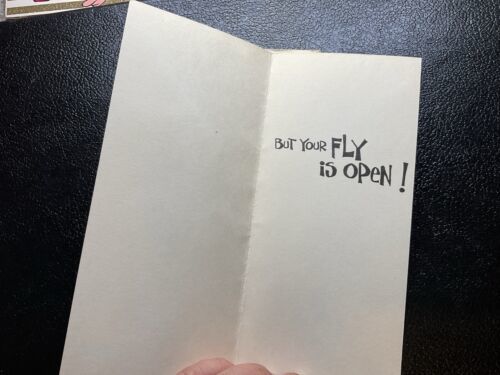 BUT YOUR FLY
iS OPeN!